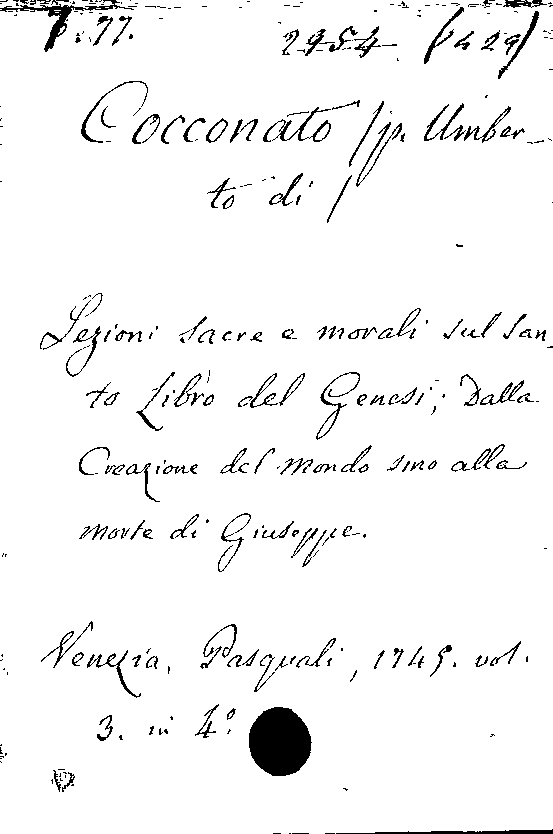 7.77. 2954 (1429)
Cocconato / p. Umber_
to di /
Lezioni sacre e morali sul San_
to Libro del Genesi; Dalla
Creazione del Mondo sino alla
morte di Giuseppe.
Venezia, Pasquali, 1745. vol.
3. in 4º.